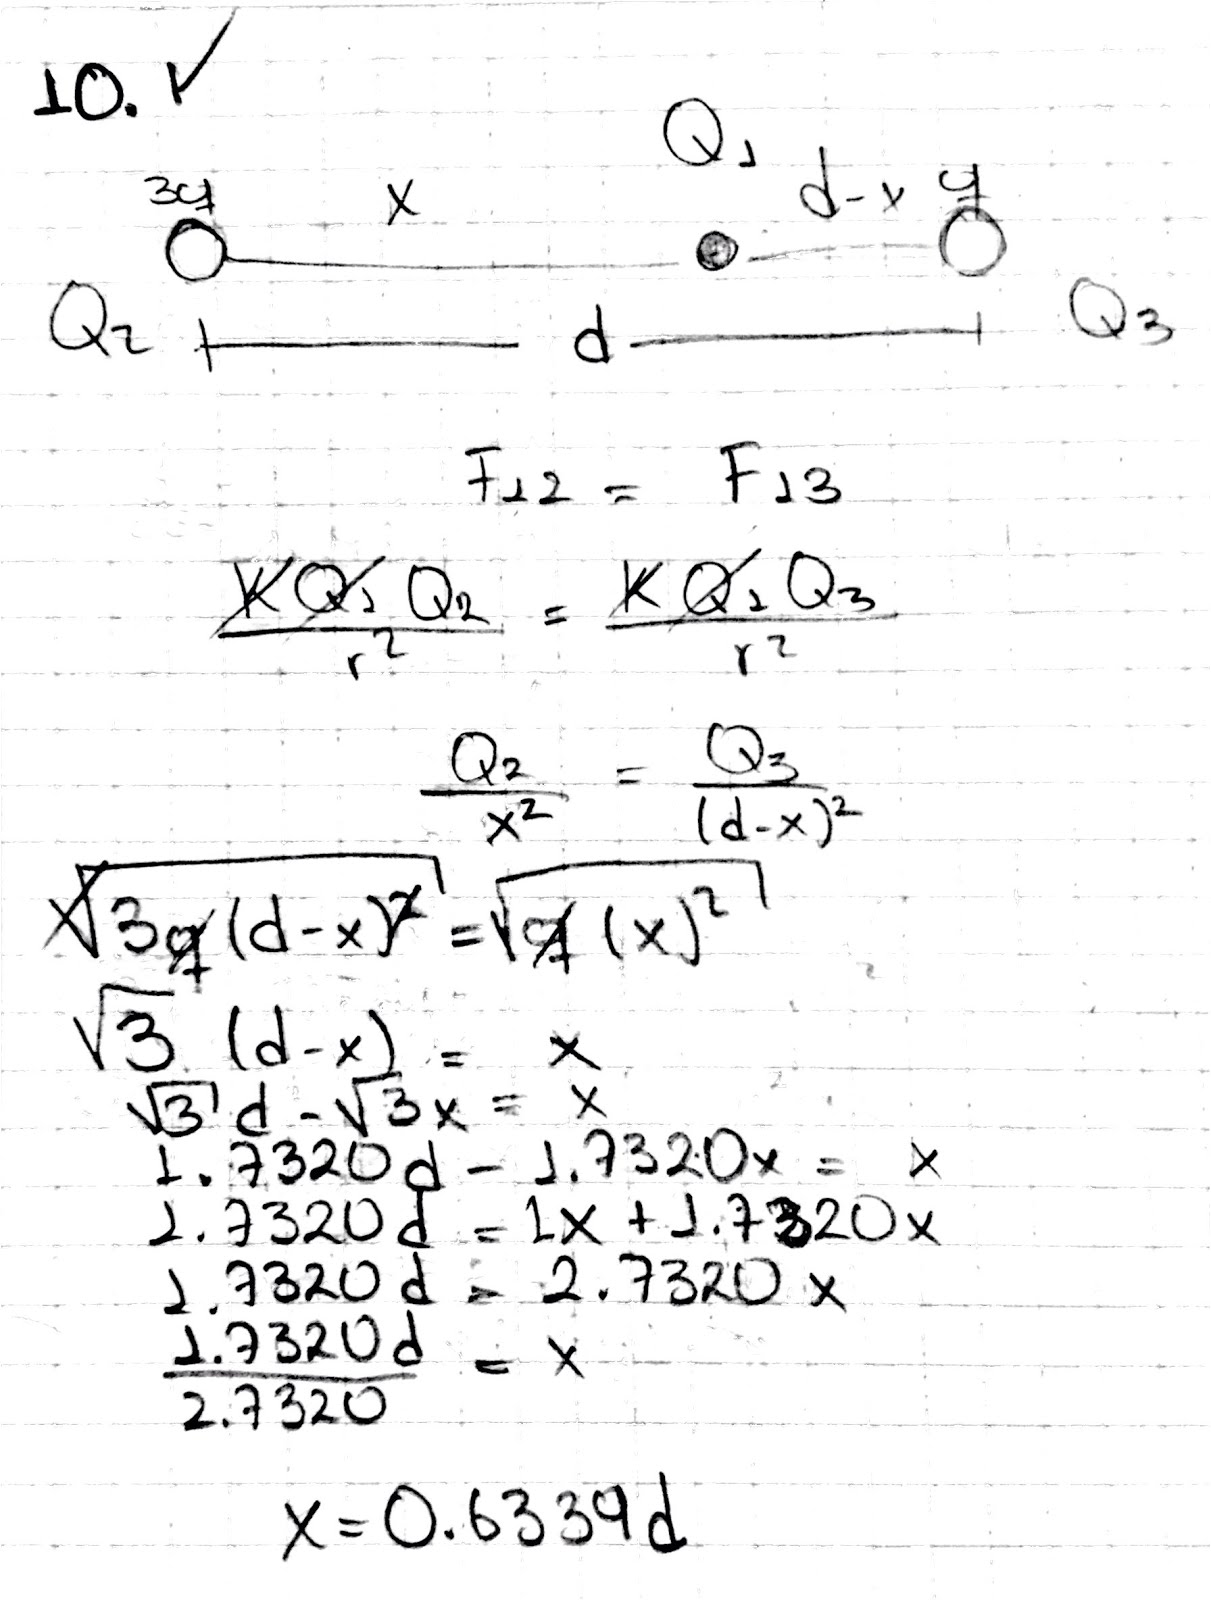 10. ✓
Q1
3q x d-x q
Q2 d Q3
F12 = F13
KQ1Q2/r² = KQ1Q3/r²
Q2/x² = Q3/(d-x)²
√3q(d-x)² = √q(x)²
√3 (d-x) = x
√3 d - √3x = x
1.7320d - 1.7320x = x
1.7320d = 1x + 1.7320x
1.7320d = 2.7320x
1.7320d/2.7320 = x
x = 0.6339d